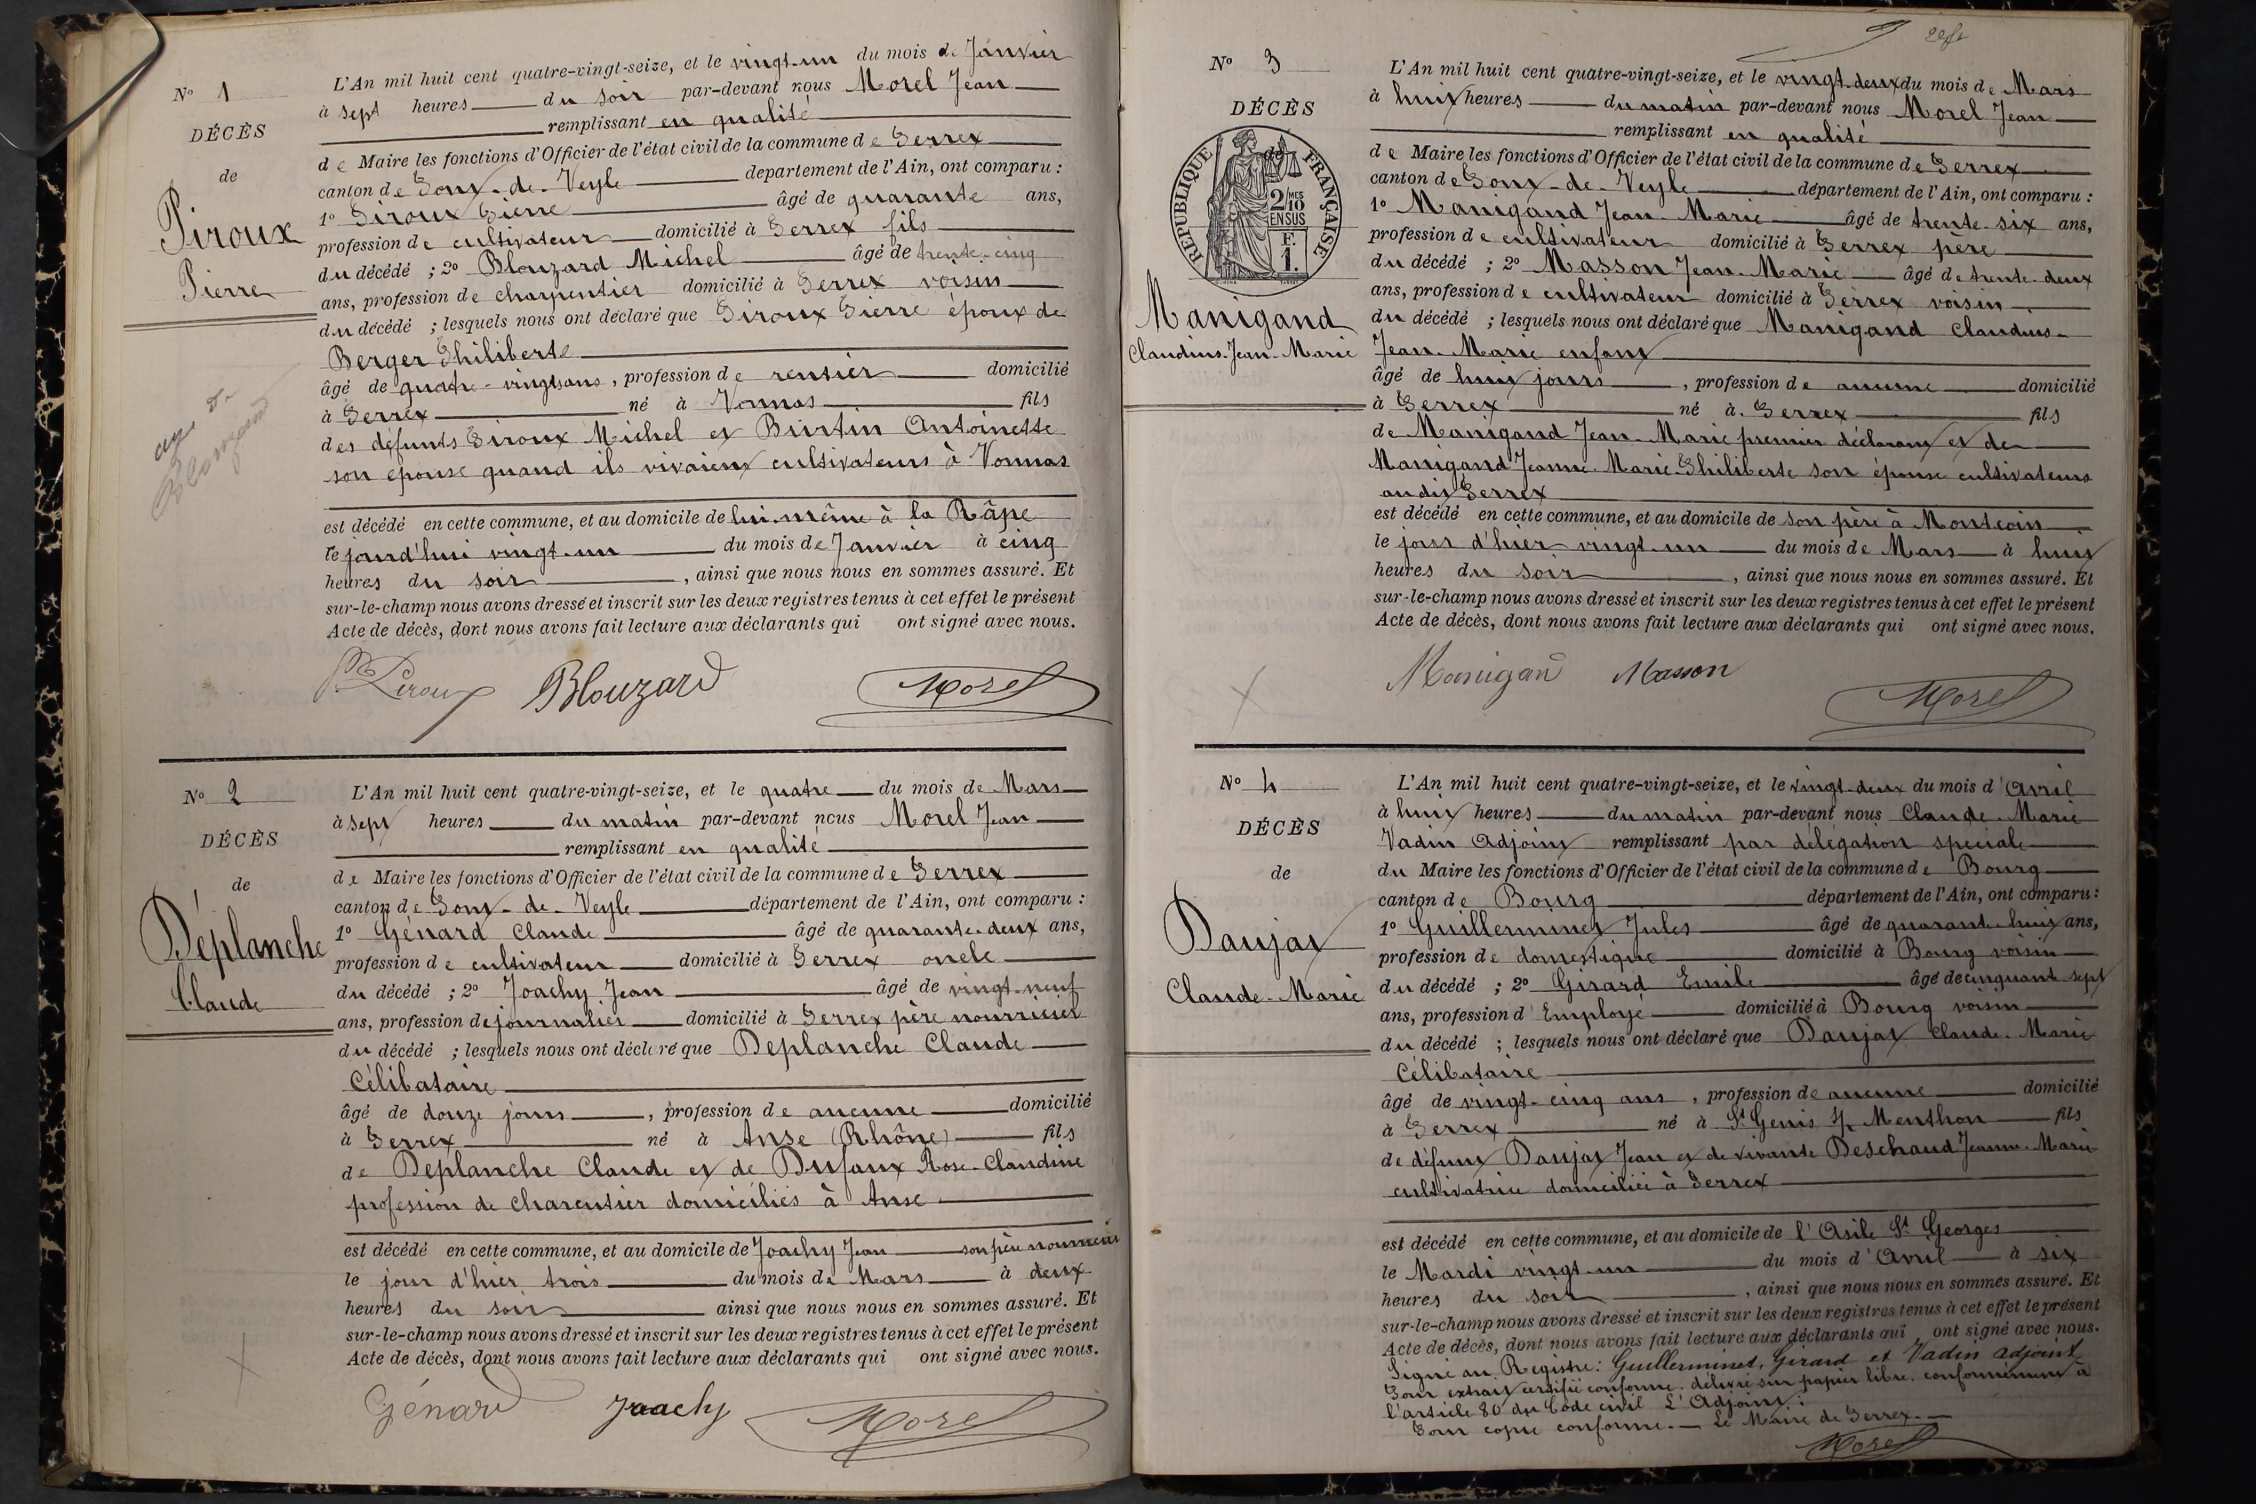 N° 1
DÉCÈS
de
Piroux
Pierre
L'An mil huit cent quatre-vingt-seize, et le vingt-un du mois de Janvier
à sept heures du soir par-devant nous Morel Jean
remplissant en qualité
de Maire les fonctions d'Officier de l'état civil de la commune de Perrex
canton de Pont-de-Veyle département de l'Ain, ont comparu :
1° Piroux Pierre âgé de quarante ans,
profession de cultivateur domicilié à Perrex fils
du décédé ; 2° Blouzard Michel âgé de trente-cinq
ans, profession de charpentier domicilié à Perrex voisin
du décédé ; lesquels nous ont déclaré que Piroux Pierre époux de
Berger Philiberte
âgé de quatre-vingts ans, profession de rentier domicilié
à Perrex né à Vonnas fils
des défunts Piroux Michel et Burtin Antoinette
son épouse quand ils vivaient cultivateurs à Vonnas
est décédé en cette commune, et au domicile de lui-même à la Râpe
le jourd'hui vingt-un du mois de Janvier à cinq
heures du soir, ainsi que nous nous en sommes assuré. Et
sur-le-champ nous avons dressé et inscrit sur les deux registres tenus à cet effet le présent
Acte de décès, dont nous avons fait lecture aux déclarants qui ont signé avec nous.
Piroux Blouzard Morel
N° 2
DÉCÈS
de
Déplanche
Claude
L'An mil huit cent quatre-vingt-seize, et le quatre du mois de Mars
à sept heures du matin par-devant nous Morel Jean
remplissant en qualité
de Maire les fonctions d'Officier de l'état civil de la commune de Perrex
canton de Pont-de-Veyle département de l'Ain, ont comparu :
1° Génard Claude âgé de quarante-deux ans,
profession de cultivateur domicilié à Perrex oncle
du décédé ; 2° Joachy Jean âgé de vingt-neuf
ans, profession de journalier domicilié à Perrex père nourricier
du décédé ; lesquels nous ont déclaré que Deplanche Claude
Célibataire
âgé de douze jours, profession de aucune domicilié
à Perrex né à Anse (Rhône) fils
de Deplanche Claude et de Dufaux Rose-Claudine
profession de charentier domiciliés à Anse
est décédé en cette commune, et au domicile de Joachy Jean son père nourricier
le jour d'hier trois du mois de Mars à deux
heures du soir ainsi que nous nous en sommes assuré. Et
sur-le-champ nous avons dressé et inscrit sur les deux registres tenus à cet effet le présent
Acte de décès, dont nous avons fait lecture aux déclarants qui ont signé avec nous.
Génard Joachy Morel
N° 3
DÉCÈS
de
RÉPUBLIQUE FRANÇAISE
2/10 MES
EN SUS
F.
1.
Manigand
Claudius-Jean-Marie
L'An mil huit cent quatre-vingt-seize, et le vingt-deux du mois de Mars
à huit heures du matin par-devant nous Morel Jean
remplissant en qualité
de Maire les fonctions d'Officier de l'état civil de la commune de Perrex
canton de Pont-de-Veyle département de l'Ain, ont comparu :
1° Manigand Jean-Marie âgé de trente-six ans,
profession de cultivateur domicilié à Perrex père
du décédé ; 2° Masson Jean-Marie âgé de trente-deux
ans, profession de cultivateur domicilié à Perrex voisin
du décédé ; lesquels nous ont déclaré que Manigand Claudius-
Jean-Marie enfant
âgé de huit jours, profession de aucune domicilié
à Perrex né à Perrex fils
de Manigand Jean-Marie premier déclarant et de
Manigand Jeanne-Marie-Philiberte son épouse cultivateurs
audit Perrex
est décédé en cette commune, et au domicile de son père à Montcoin
le jour d'hier vingt-un du mois de Mars à huit
heures du soir, ainsi que nous nous en sommes assuré. Et
sur-le-champ nous avons dressé et inscrit sur les deux registres tenus à cet effet le présent
Acte de décès, dont nous avons fait lecture aux déclarants qui ont signé avec nous.
Manigand Masson Morel
N° 4
DÉCÈS
de
Daujat
Claude-Marie
L'An mil huit cent quatre-vingt-seize, et le vingt-deux du mois d'Avril
à huit heures du matin par-devant nous Claude-Marie
Vadin Adjoint remplissant par délégation spéciale
du Maire les fonctions d'Officier de l'état civil de la commune de Bourg
canton de Bourg département de l'Ain, ont comparu :
1° Guillerminet Jules âgé de quarante-huit ans,
profession de domestique domicilié à Bourg voisin
du décédé ; 2° Girard Emile âgé de cinquant sept
ans, profession d'Employé domicilié à Bourg voisin
du décédé ; lesquels nous ont déclaré que Daujat Claude-Marie
Célibataire
âgé de vingt-cinq ans, profession de aucune domicilié
à Perrex né à St Genis s/ Menthon fils
de défunt Daujat Jean et de vivante Deschaud Jeanne-Marie
cultivatrice domiciliée à Perrex
est décédé en cette commune, et au domicile de l'Asile St Georges
le Mardi vingt-un du mois d'Avril à six
heures du soir, ainsi que nous nous en sommes assuré. Et
sur-le-champ nous avons dressé et inscrit sur les deux registres tenus à cet effet le présent
Acte de décès, dont nous avons fait lecture aux déclarants qui ont signé avec nous.
Signé au Registre : Guillerminet, Girard et Vadin adjoint
Pour extrait certifié conforme délivré sur papier libre conformément à
l'article 80 du Code civil L'Adjoint :
Pour copie conforme. — Le Maire de Perrex. —
Morel